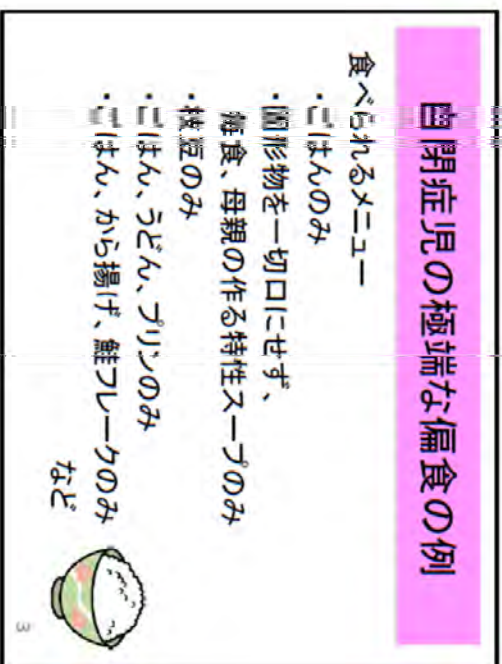 自閉症児の極端な偏食の例
食べられるメニュー
・ごはんのみ
・固形物を一切口にせず、
毎食、母親の作る特性スープのみ
・枝豆のみ
・ごはん、うどん、プリンのみ
・ごはん、から揚げ、鮭フレークのみ
など
3